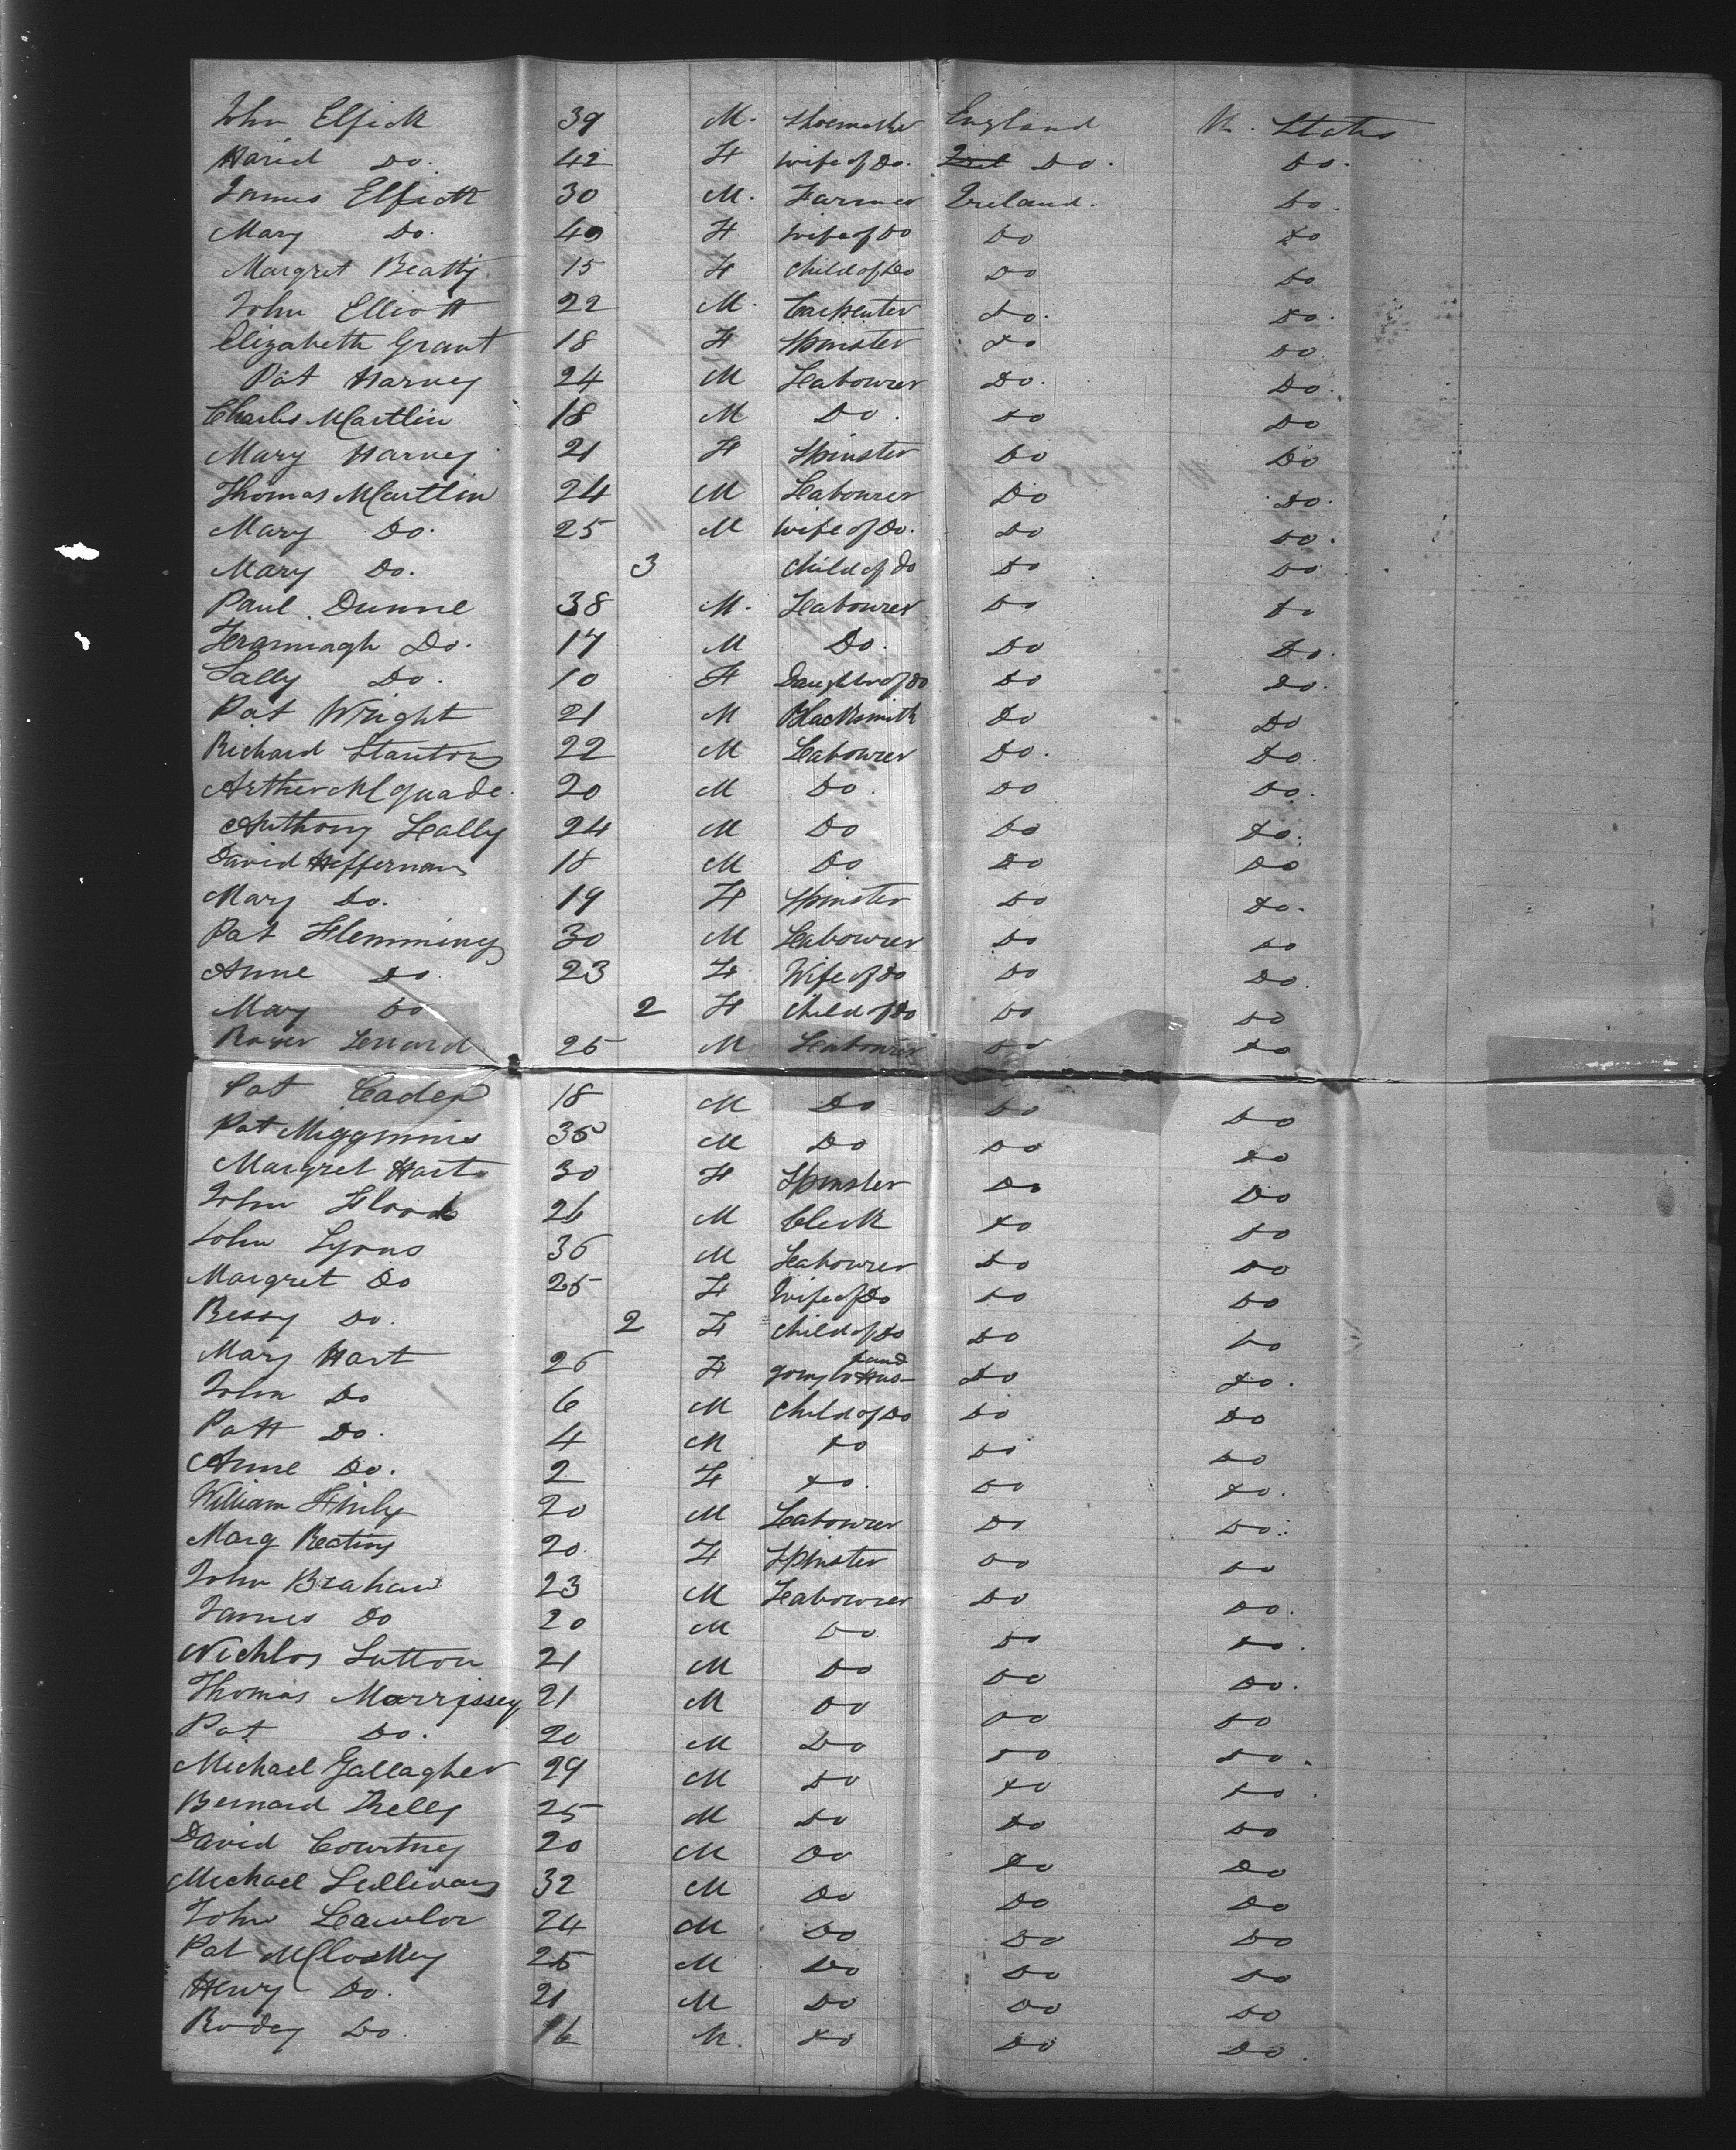 John Elfick 39 M. Shoemaker England U. States
Haried Do. 42 F wife of Do. Irel Do. Do.
James Elfiott 30 M. Farmer Ireland. Do.
Mary Do. 40 F wife of Do Do Do
Margret Beatty 15 F Child of Do Do Do
John Elliott 22 M. Carpenter Do. Do.
Elizabeth Grant 18 F Spinster Do Do
Pat Harney 24 M Labourer Do. Do.
Charles MCartlin 18 M Do. Do Do
Mary Harney 21 F Spinster Do Do
Thomas MCartlin 24 M Labourer Do Do.
Mary Do. 25 M wife of Do. Do Do.
Mary Do. 3 Child of Do Do Do
Paul Dunne 38 M. Labourer Do Do
Do. 17 M Do. Do Do.
Sally Do. 10 F Daughter of Do Do Do.
Pat Wright 21 M Blacksmith Do Do
Richard Stanton 22 M Labourer Do. Do.
Arther MCquade. 20 M Do. Do Do.
Anthony Lally 24 M Do Do Do.
David Heffernan 18 M Do Do Do
Mary Do. 19 F Spinster Do Do.
Pat Flemming 30 M Labourer Do Do
Anne Do. 23 F Wife of Do Do Do.
Mary Do 2 F Child of Do Do Do
Lennard 25 M Labourer Do Do
Pat Caden 18 M Do Do Do
Pat Migginnis 35 M Do Do Do
Margret Hart 30 F Spinster Do Do
John Flood 26 M Clerk Do Do
John Lyons 36 M Labourer Do Do
Margret Do 25 F Wife of Do Do Do
Bessy Do. 2 F Child of Do Do Do
Mary Hart 26 F going to Husband Do Do.
John Do 6 M Child of Do Do Do
Patt Do. 4 M Do Do Do
Anne Do. 2 F Do. Do Do.
William 20 M Labourer Do Do.
Marg Keating 20 F Spinster Do Do
John Brahan 23 M Labourer Do Do.
James Do 20 M Do Do Do.
Nichlos Sutton 21 M Do Do Do.
Thomas Morrissey 21 M Do Do Do
Pat Do. 20 M Do Do Do.
Michael Gallagher 29 M Do Do Do.
Bernard Kelly 25 M Do Do Do
David Courtney 20 M Do Do Do
Michael Sullivan 32 M Do Do Do
John Lawlor 24 M Do Do Do
Pat MCloskey 25 M Do Do Do
Henry Do. 21 M Do Do Do
Rodey Do 16 M. Do Do Do.